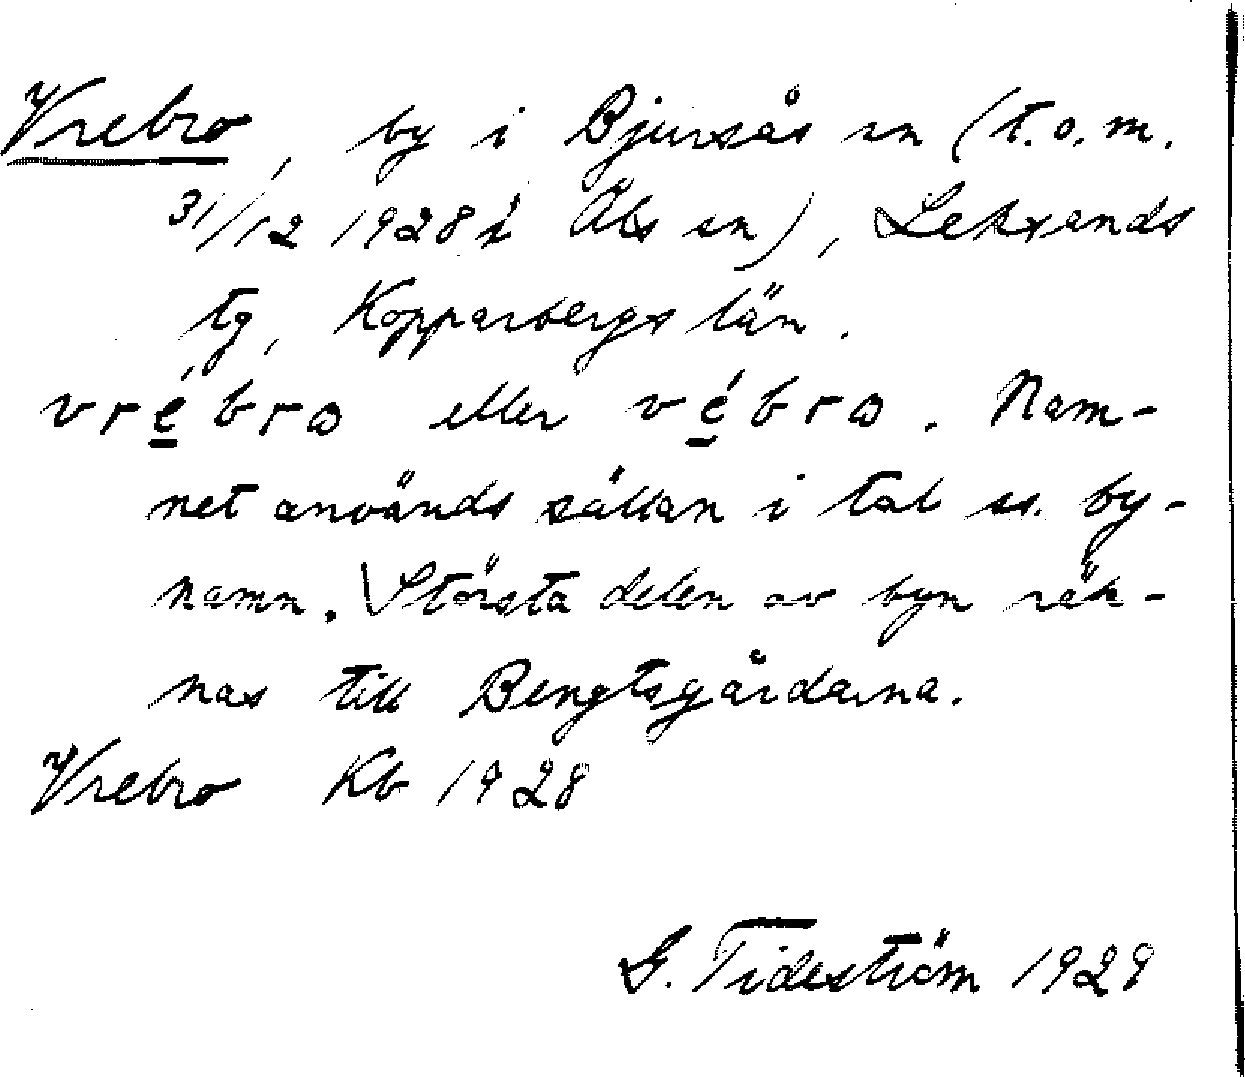 Vrebro, by i Bjursås sn (t.o.m.
31/12 1928 i Åls sn), Leksands
tg, Kopparbergs län.
vré̲bro eller vé̲bro. Nam-
net används sällan i tal ss. by-
namn. Största delen av byn räk-
nas till Bengtsgårdarna.
Vrebro Kb 1928
G. Tideström 1929